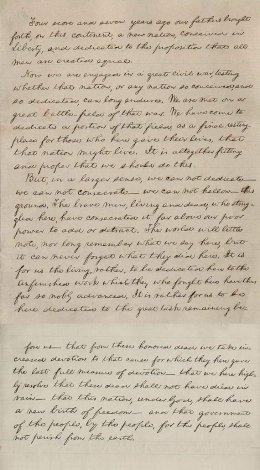 Four score and seven years ago our fathers brought
forth, on this continent, a new nation, conceived in
Liberty, and dedicated to the proposition that all
men are created equal.
Now we are engaged in a great civil war, testing
whether that nation, or any nation so conceived, and
so dedicated, can long endure. We are met on a
great battle field of that war. We have come to
dedicate a portion of that field, as a final resting
place for those who here gave their lives, that
that nation might live. It is altogether fitting
and proper that we should do this.
But, in a larger sense, we can not dedicate—
we can not consecrate— we can not hallow— this
ground. The brave men, living and dead, who strug-
gled here, have consecrated it far above our poor
power to add or detract. The world will little
note, nor long remember what we say here, but
it can never forget what they did here. It is
for us the living, rather, to be dedicated here to the
unfinished work which they who fought here have thus
far so nobly advanced. It is rather for us to be
here dedicated to the great task remaining be-
fore us— that from these honored dead we take in-
creased devotion to that cause for which they here gave
the last full measure of devotion— that we here high-
ly resolve that these dead shall not have died in
vain— that this nation, under God, shall have
a new birth of freedom— and that government
of the people, by the people, for the people, shall
not perish from the earth.